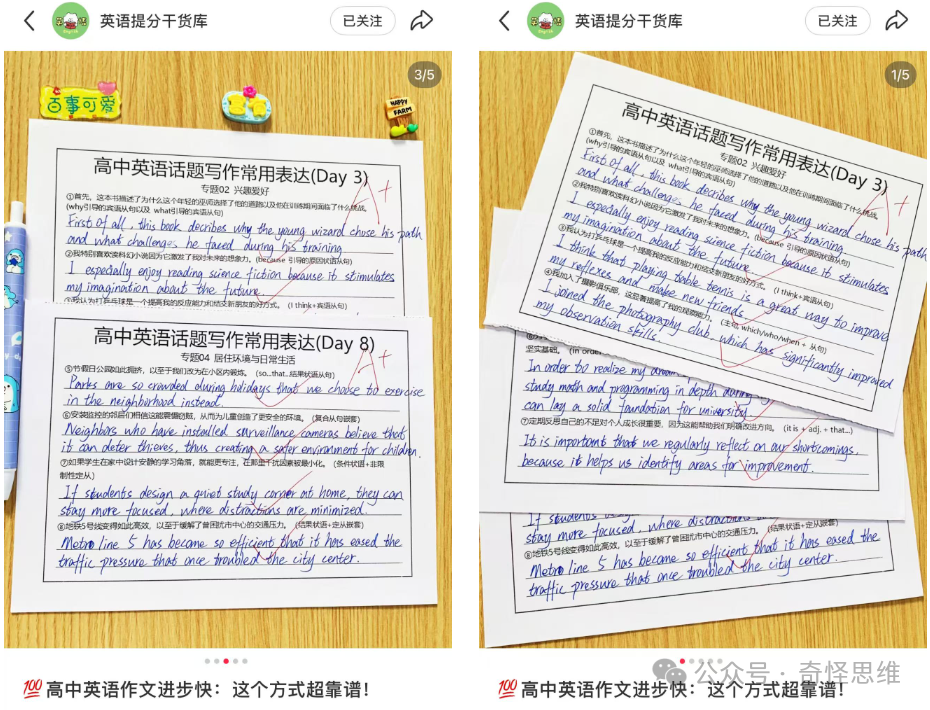 英语提分干货库
已关注
3/5
百事可爱
HAPPY
FARM
高中英语话题写作常用表达(Day 3)
专题02 兴趣爱好
A+
①首先，这本书描述了为什么这个年轻的巫师选择了他的道路以及他在训练期间面临了什么挑战。
(why引导的宾语从句以及 what引导的宾语从句)
First of all, this book decribes why the young wizard chose his path
and what challenges he faced during his training
②我特别喜欢读科幻小说因为它激发了我对未来的想象力。(because 引导的原因状语从句)
I especially enjoy reading science fiction because it stimulates
my imagination about the future.
③我认为打乒乓球是一个提高我的反应能力和结交新朋友的好方式。(I think+宾语从句)
高中英语话题写作常用表达(Day 8)
专题04 居住环境与日常生活
A+
⑤节假日公园如此拥挤，以至于我们改为在小区内锻炼。(so...that...结果状语从句)
Parks are so crowded during holidays that we choose to exercise
in the neighborhood instead.
⑥安装监控的邻居们相信这能震慑窃贼，从而为儿童创造了更安全的环境。(复合从句嵌套)
Neighbors who have installed surveillance cameras believe that
it can deter thieves, thus creating a safer environment for children.
⑦如果学生在家中设计安静的学习角落，就能更专注，在那里干扰因素被最小化。(条件状语+非限
制性定从)
If students design a quiet study corner at home, they can
stay more focused, where distractions are minimized.
⑧地铁5号线变得如此高效，以至于缓解了曾困扰市中心的交通压力。(结果状语+定从嵌套)
Metro line 5 has become so efficient that it has eased the
traffic pressure that once troubled the city center.
💯高中英语作文进步快：这个方式超靠谱！
英语提分干货库
已关注
1/5
高中英语话题写作常用表达(Day 3)
专题02 兴趣爱好
A+
①首先，这本书描述了为什么这个年轻的巫师选择了他的道路以及他在训练期间面临了什么挑战。
(why引导的宾语从句以及 what引导的宾语从句)
First of all, this book decribes why the young wizard chose his path
and what challenges he faced during his training
②我特别喜欢读科幻小说因为它激发了我对未来的想象力。(because 引导的原因状语从句)
I especially enjoy reading science fiction because it stimulates
my imagination about the future.
③我认为打乒乓球是一个提高我的反应能力和结交新朋友的好方式。(I think+宾语从句)
I think that playing table tennis is a great way to improve
my reflexes and make new friends.
④我加入了摄影俱乐部，这显著提高了我的观察能力。(主句, which/who/when + 从句)
I joined the photography club, which has significantly improved
my observation skills.
坚实基础。(in order
In order to realize my dream
study math and programming in depth during
can lay a solid foundation for university.
⑦定期反思自己的不足对个人成长很重要，因为这能帮助我们明确改进方向。(it is + adj. + that...)
It is important that we regularly reflect on our shortcomings,
because it helps us identify areas for improvement.
If students
stay more focused, where distractions
⑧地铁5号线变得如此高效，以至于缓解了曾困扰市中心的交通压力。(结果状语+定从嵌套)
Metro line 5 has become so efficient that it has eased the
traffic pressure that once troubled the city center.
公众号·奇怪思维
💯高中英语作文进步快：这个方式超靠谱！